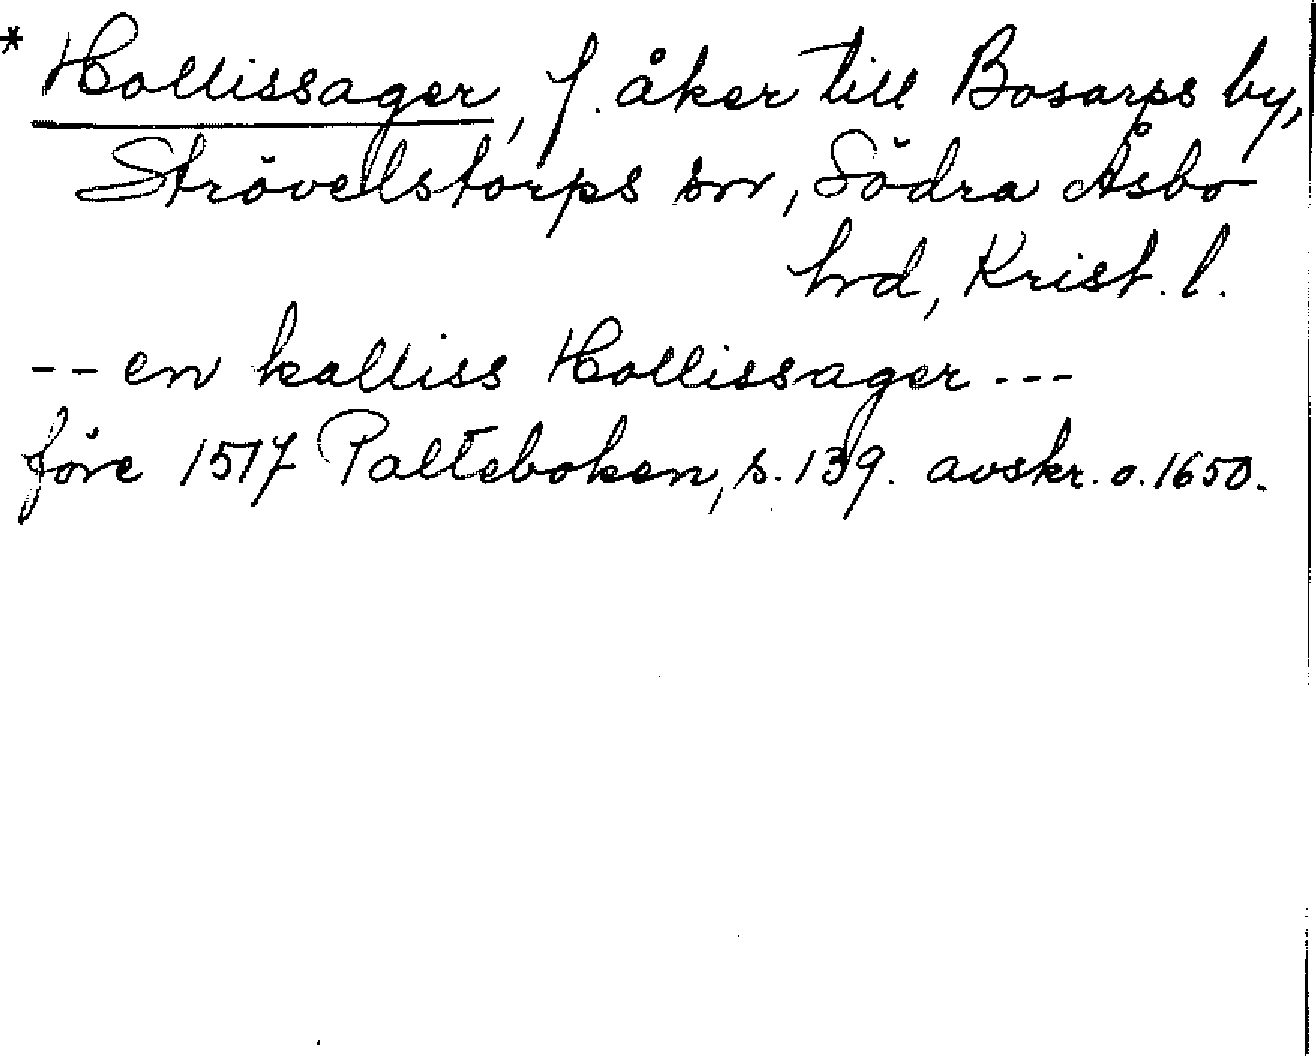 * Hollissager, f. åker till Bosarps by,
Strövelstorps sn, Södra Åsbo
hd, Krist. l.
-- en kalliss Hollissager ---
före 1517 Palteboken, s. 139. avskr. o. 1650.